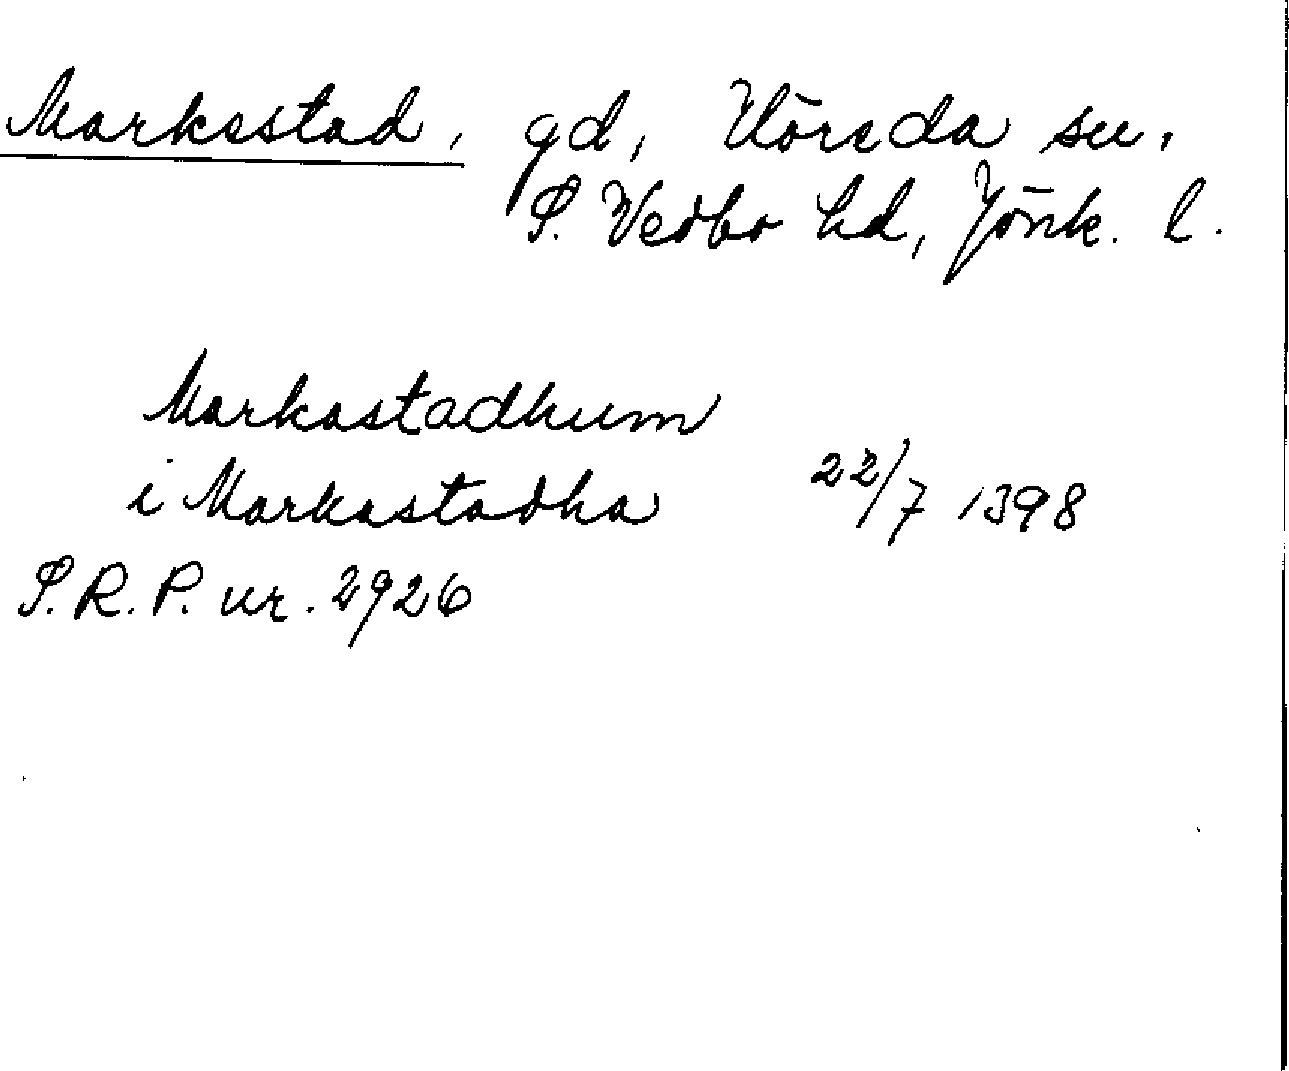 Markestad, gd, Höreda sn,
S. Vedbo hd, Jönk. l.
Markastadhum
i Markastadha 22/7 1398
S. R. P. nr. 2926